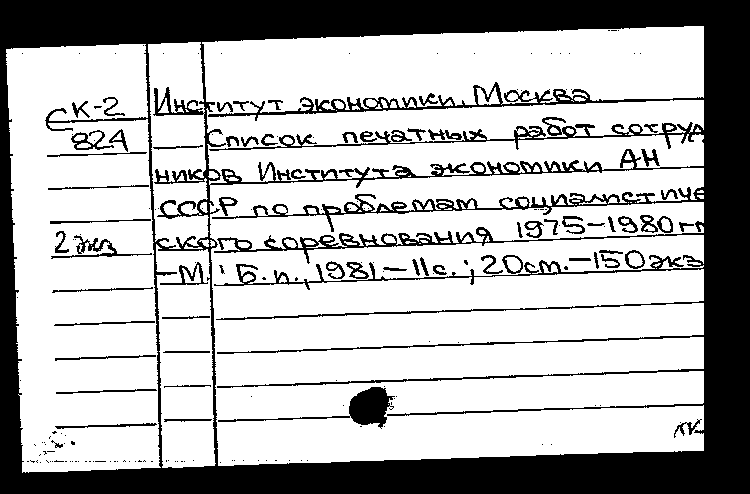 СК-2 Институт экономики, Москва
824 Список печатных работ сотруд
ников Института экономики АН
СССР по проблемам социалистиче
2 экз ского соревнования 1975-1980гг
-М.: Б.и., 1981.-11с.; 20см.-150экз